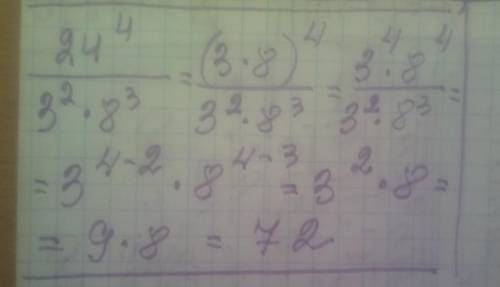 24⁴/(3²·8³) = (3·8)⁴/(3²·8³) = (3⁴·8⁴)/(3²·8³) =
= 3⁴⁻²·8⁴⁻³ = 3²·8 =
= 9·8 = 72